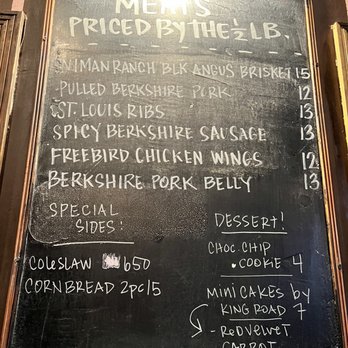 MEATS
PRICED BY THE 1/2 LB.
NIMAN RANCH BLK ANGUS BRISKET 15
PULLED BERKSHIRE PORK 12
ST. LOUIS RIBS 13
SPICY BERKSHIRE SAUSAGE 13
FREEBIRD CHICKEN WINGS 12
BERKSHIRE PORK BELLY 13
SPECIAL
SIDES!
COLESLAW 650
CORNBREAD 2pc/5
DESSERT!
CHOC. CHIP
• COOKIE 4
MINI CAKES by
KING ROAD 7
- RED VELVET
CARROT